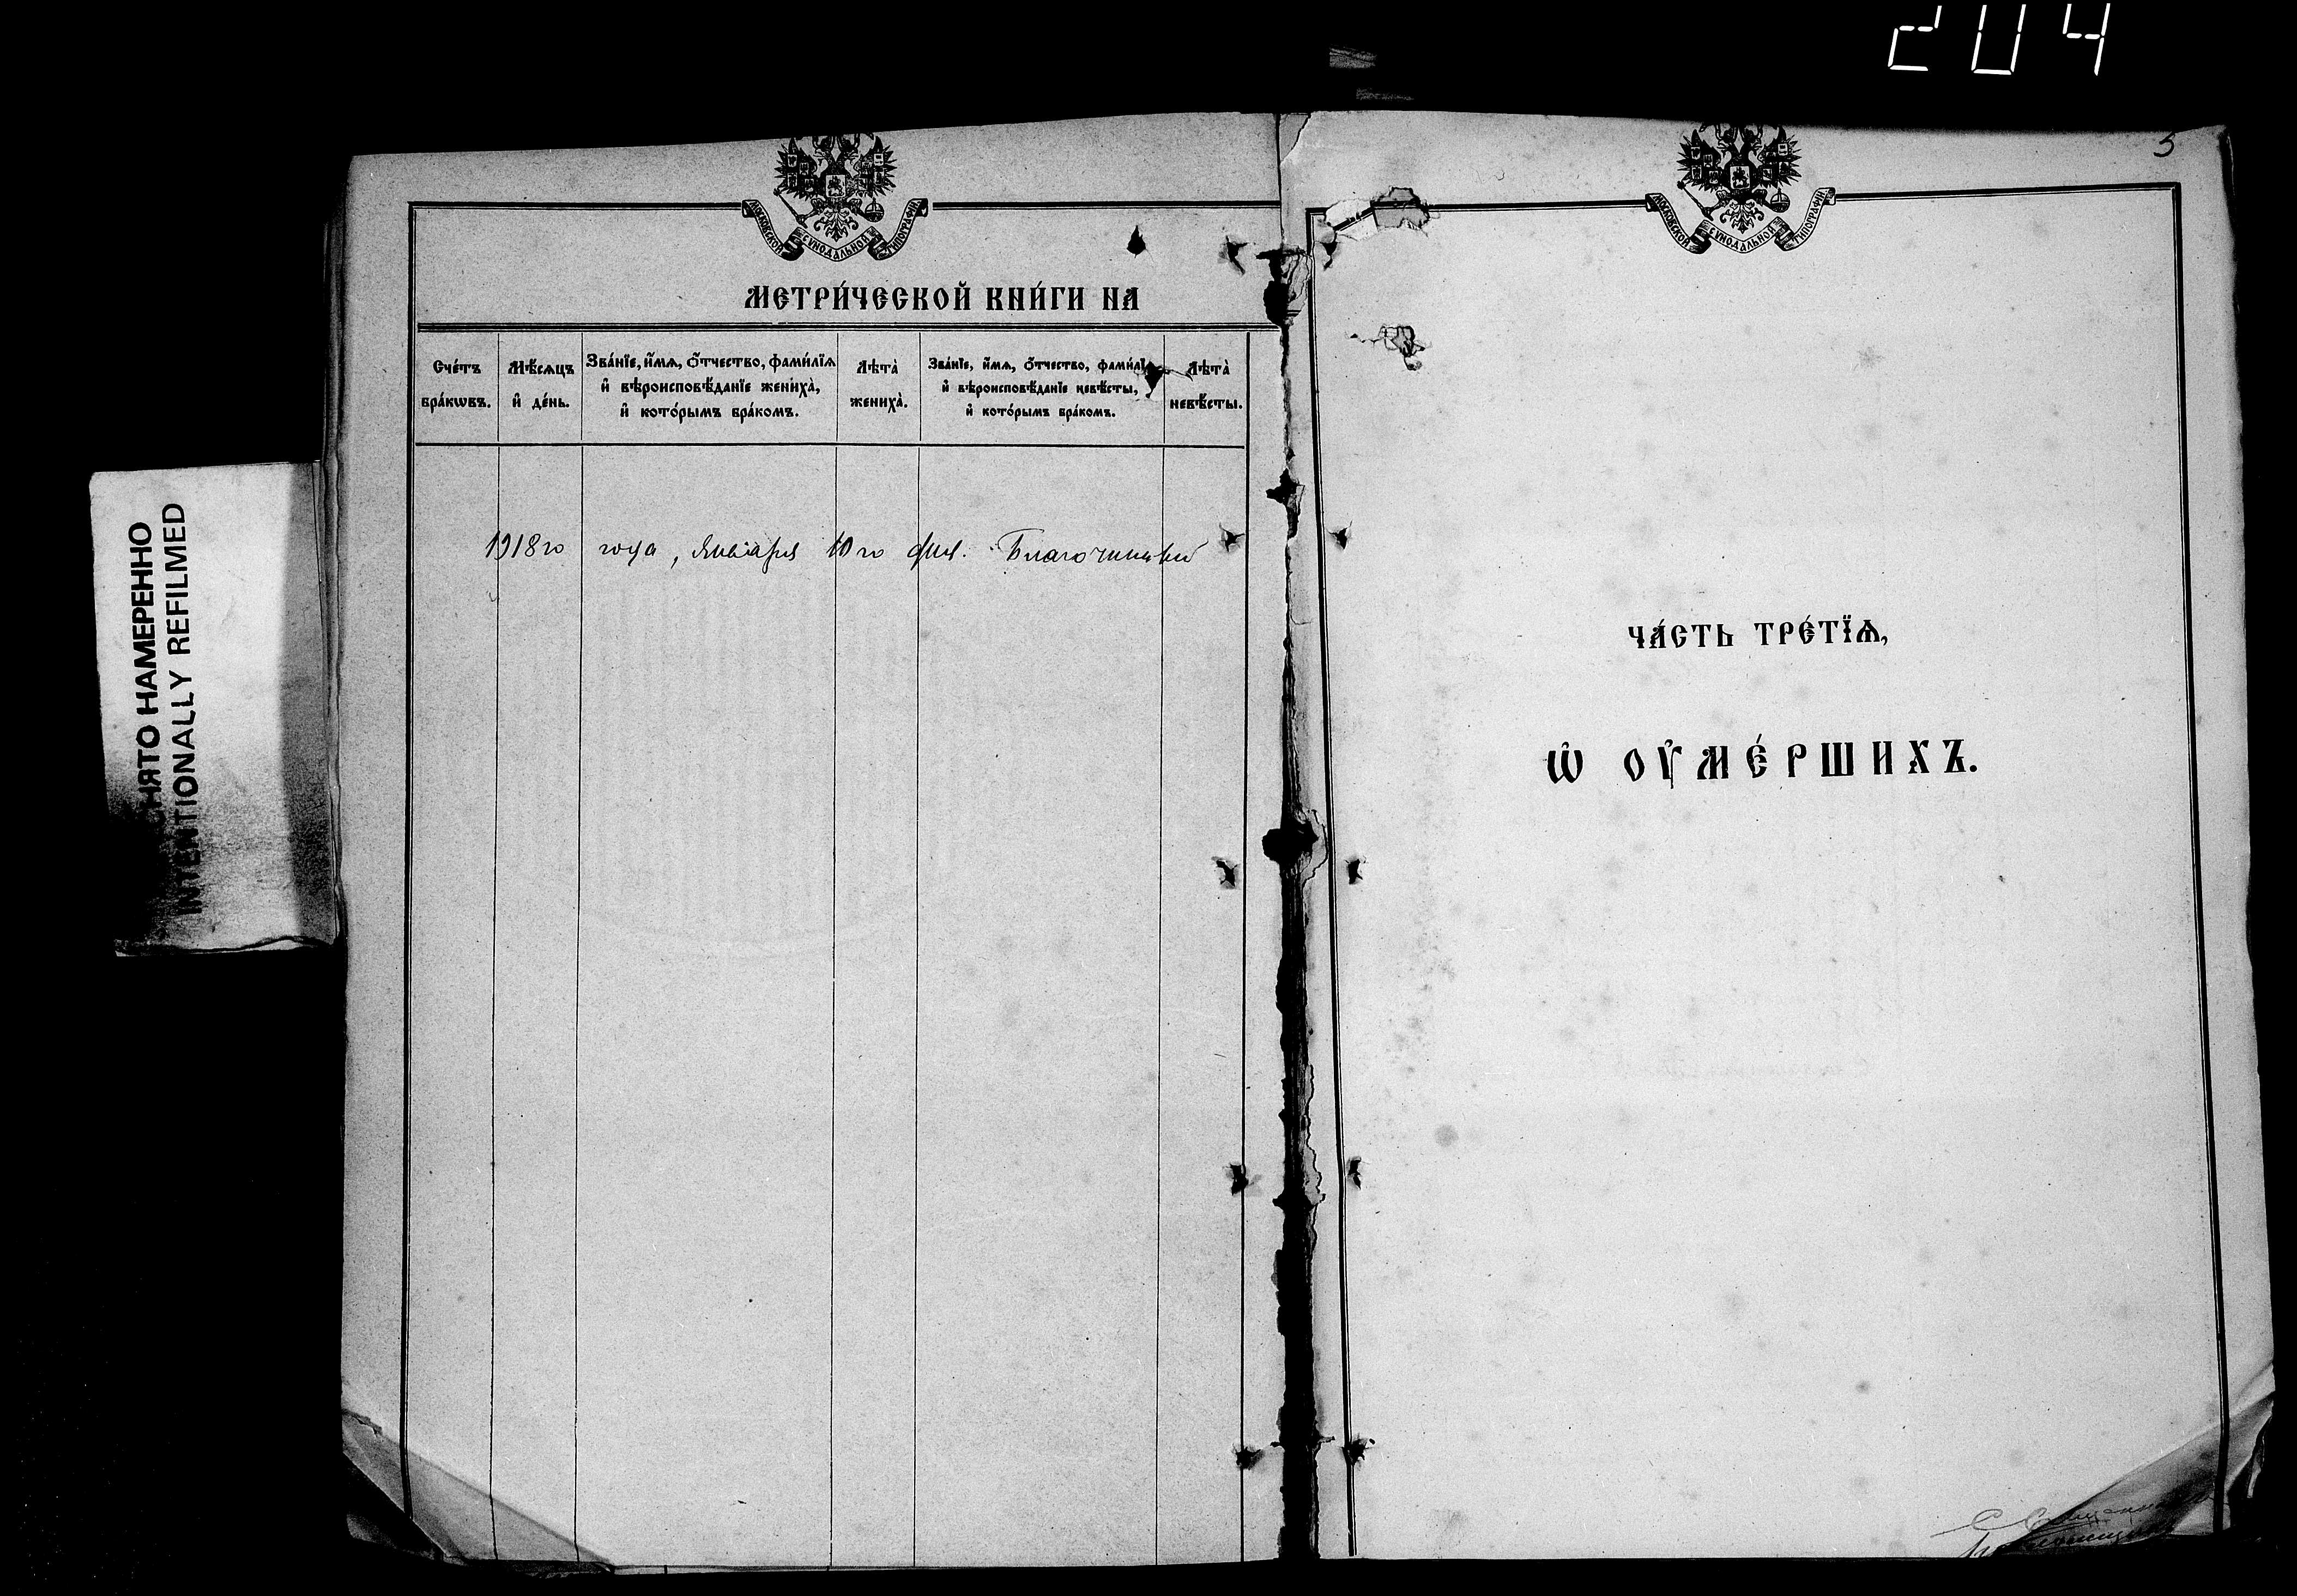 204
СНЯТО НАМЕРЕННО
INTENTIONALLY REFILMED
МОСКОВСКОЙ СѴНОДАЛЬНОЙ ТИПОГРАФІИ
МЕТРИ́ЧЕСКОЙ КНИ́ГИ НА
Сче́тъ бра́кѡвъ.
Мѣ́сѧцъ и҆ де́нь.
Зва́нїе, и҆́мѧ, ѻ҆́тчество, фами́лїѧ
и҆ вѣроисповѣ́данїе жениха̀,
и҆ кото́рымъ бра́комъ.
Лѣта̀ жениха̀.
Зва́нїе, и҆́мѧ, ѻ҆́тчество, фами́лї
и҆ вѣроисповѣ́данїе невѣ́сты,
и҆ кото́рымъ бра́комъ.
Лѣта̀ невѣ́сты.
1918го года, Января 10го дня. Благочинный
5
МОСКОВСКОЙ СѴНОДАЛЬНОЙ ТИПОГРАФІИ
ЧА́СТЬ ТРЕ́ТЇѦ,
Ѡ҆ ОУ҆МЕ́РШИХЪ.